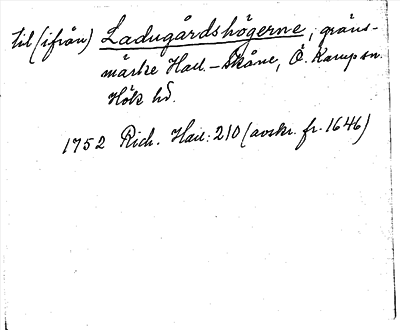 till (ifrån) Ladugårdshögerne, gräns-
märke Hall.-Skåne, Ö. Karup sn.
Höks hd.
1752 Rich. Hall: 210 (avskr. fr. 1646)